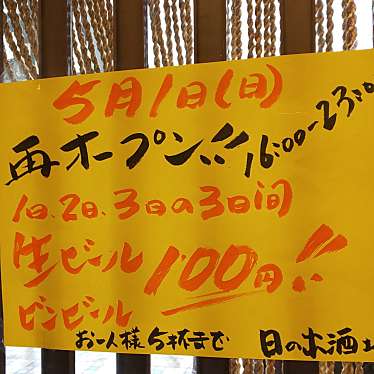 5月1日(日)
再オープン!! 16:00~23:00
1日、2日、3日の3日間
生ビール
ビンビール
100円!!
お一人様5杯まで
日の出酒